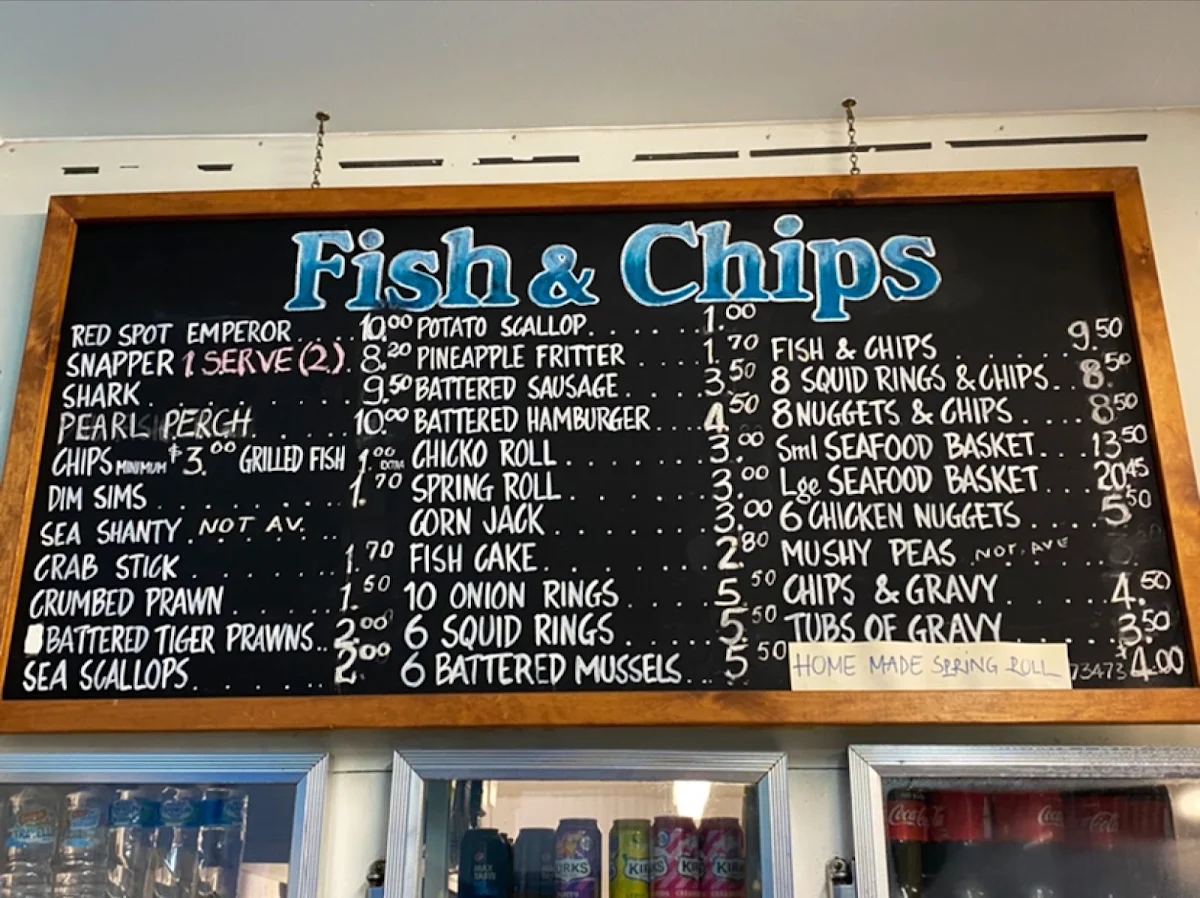 Fish & Chips
RED SPOT EMPEROR.... 10.00
SNAPPER 1 SERVE (2). 8.20
SHARK......... 9.50
PEARL PERCH....... 10.00
CHIPS MINIMUM $3.00 GRILLED FISH 1.00 EXTRA
DIM SIMS......... 1.70
SEA SHANTY. NOT AV.
CRAB STICK....... 1.70
CRUMBED PRAWN..... 1.50
BATTERED TIGER PRAWNS.. 2.00
SEA SCALLOPS....... 2.00
POTATO SCALLOP..... 1.00
PINEAPPLE FRITTER.... 1.70
BATTERED SAUSAGE.... 3.50
BATTERED HAMBURGER... 4.50
CHICKO ROLL....... 3.00
SPRING ROLL....... 3.00
CORN JACK........ 3.00
FISH CAKE........ 2.80
10 ONION RINGS..... 5.50
6 SQUID RINGS...... 5.50
6 BATTERED MUSSELS... 5.50
FISH & CHIPS...... 9.50
8 SQUID RINGS & CHIPS.. 8.50
8 NUGGETS & CHIPS.... 8.50
Sml SEAFOOD BASKET... 13.50
Lge SEAFOOD BASKET... 20.45
6 CHICKEN NUGGETS.... 5.50
MUSHY PEAS. NOT. AVE
CHIPS & GRAVY...... 4.50
TUBS OF GRAVY...... 3.50
HOME MADE SPRING ROLL 73473 $4.00
KIRKS
KIRKS
Coca-Cola